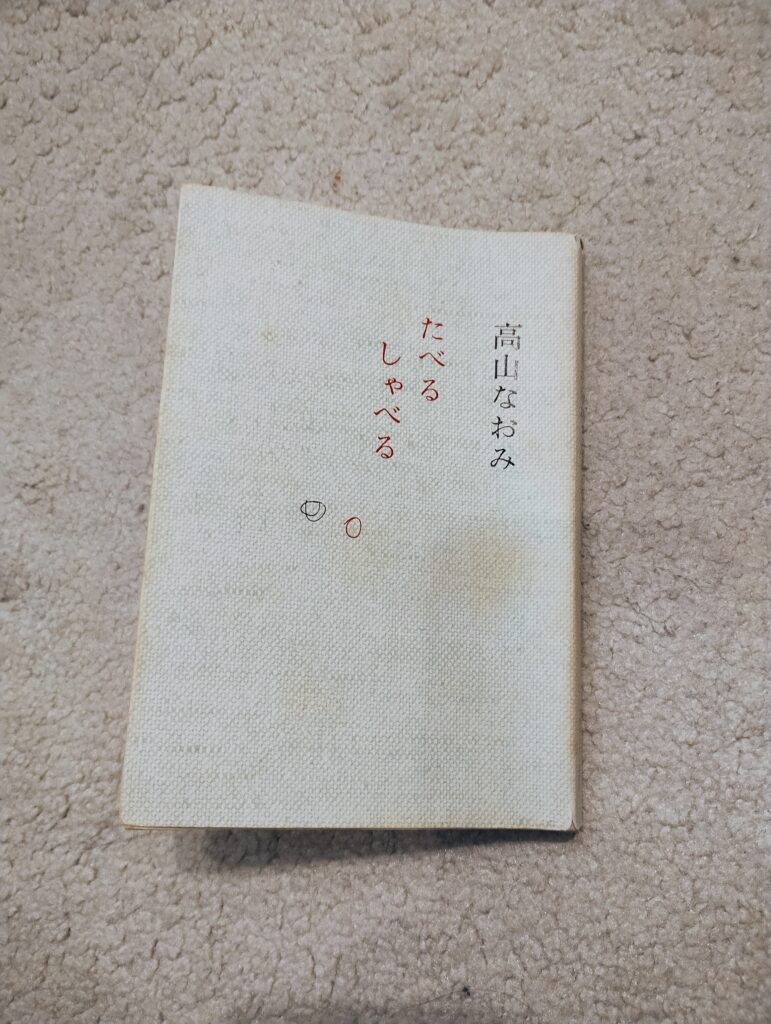 高山なおみ
たべる
しゃべる